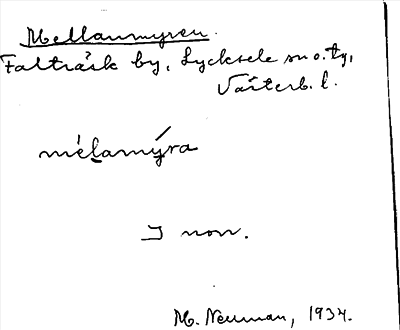 Mellanmyren.
Falträsk by, Lycksele sn o. tg,
Västerb. l.
mèlamýra
I non.
M. Neuman, 1934.